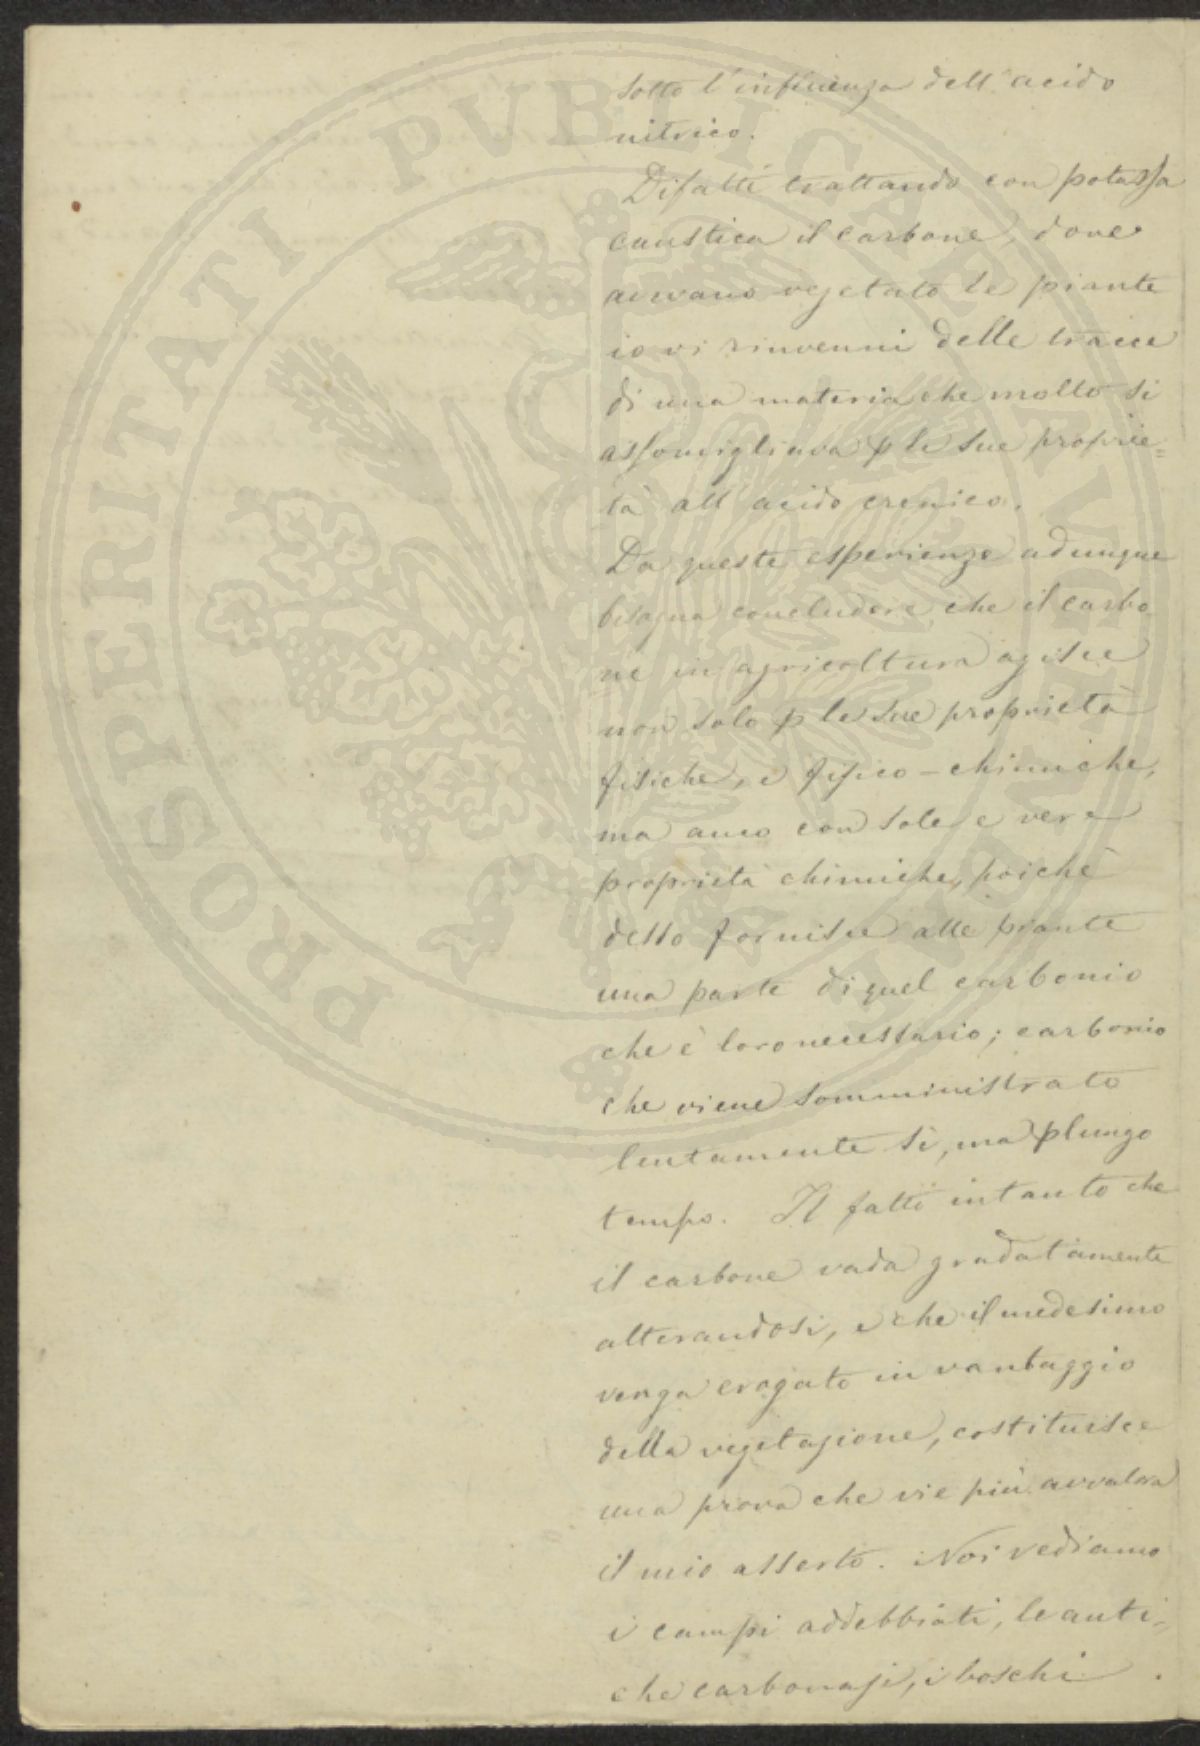 sotto l'influenza dell'acido
nitrico.
Difatti trattando con potassa
caustica il carbone, dove
avevano vegetato le piante
io vi rinvenni delle tracce
di una materia che molto si
assomigliava p le sue proprie=
tà all'acido crenico.
Da queste esperienze adunque
bisogna concludere, che il carbo
ne in agricoltura agisce
non solo p le sue proprietà
fisiche, e fisico-chimiche,
ma anco con sole e vere
proprietà chimiche, poichè
desso fornisce alle piante
una parte di quel carbonio
che è loro necessario; carbonio
che viene somministrato
lentamente sì, ma p lungo
tempo. Il fatto intanto che
il carbone vada gradatamente
alterandosi, e che il medesimo
venga erogato in vantaggio
della vegetazione, costituisce
una prova che vie più avvalora
il mio asserto. Noi vediamo
i campi addebbiati, le anti-
che carbonaje, i boschi
PROSPERITATI PUBLICAE AUGENDAE